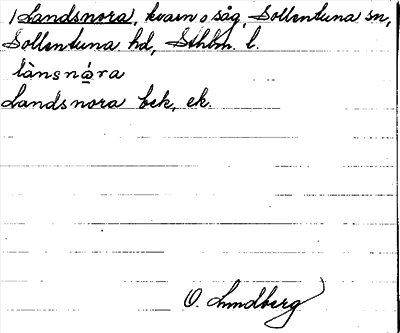 Landsnora, kvarn o såg, Sollentuna sn,
Sollentuna hd, Sthlm. l.
lànsnára
Landsnora bek, ek.
O. Lundberg